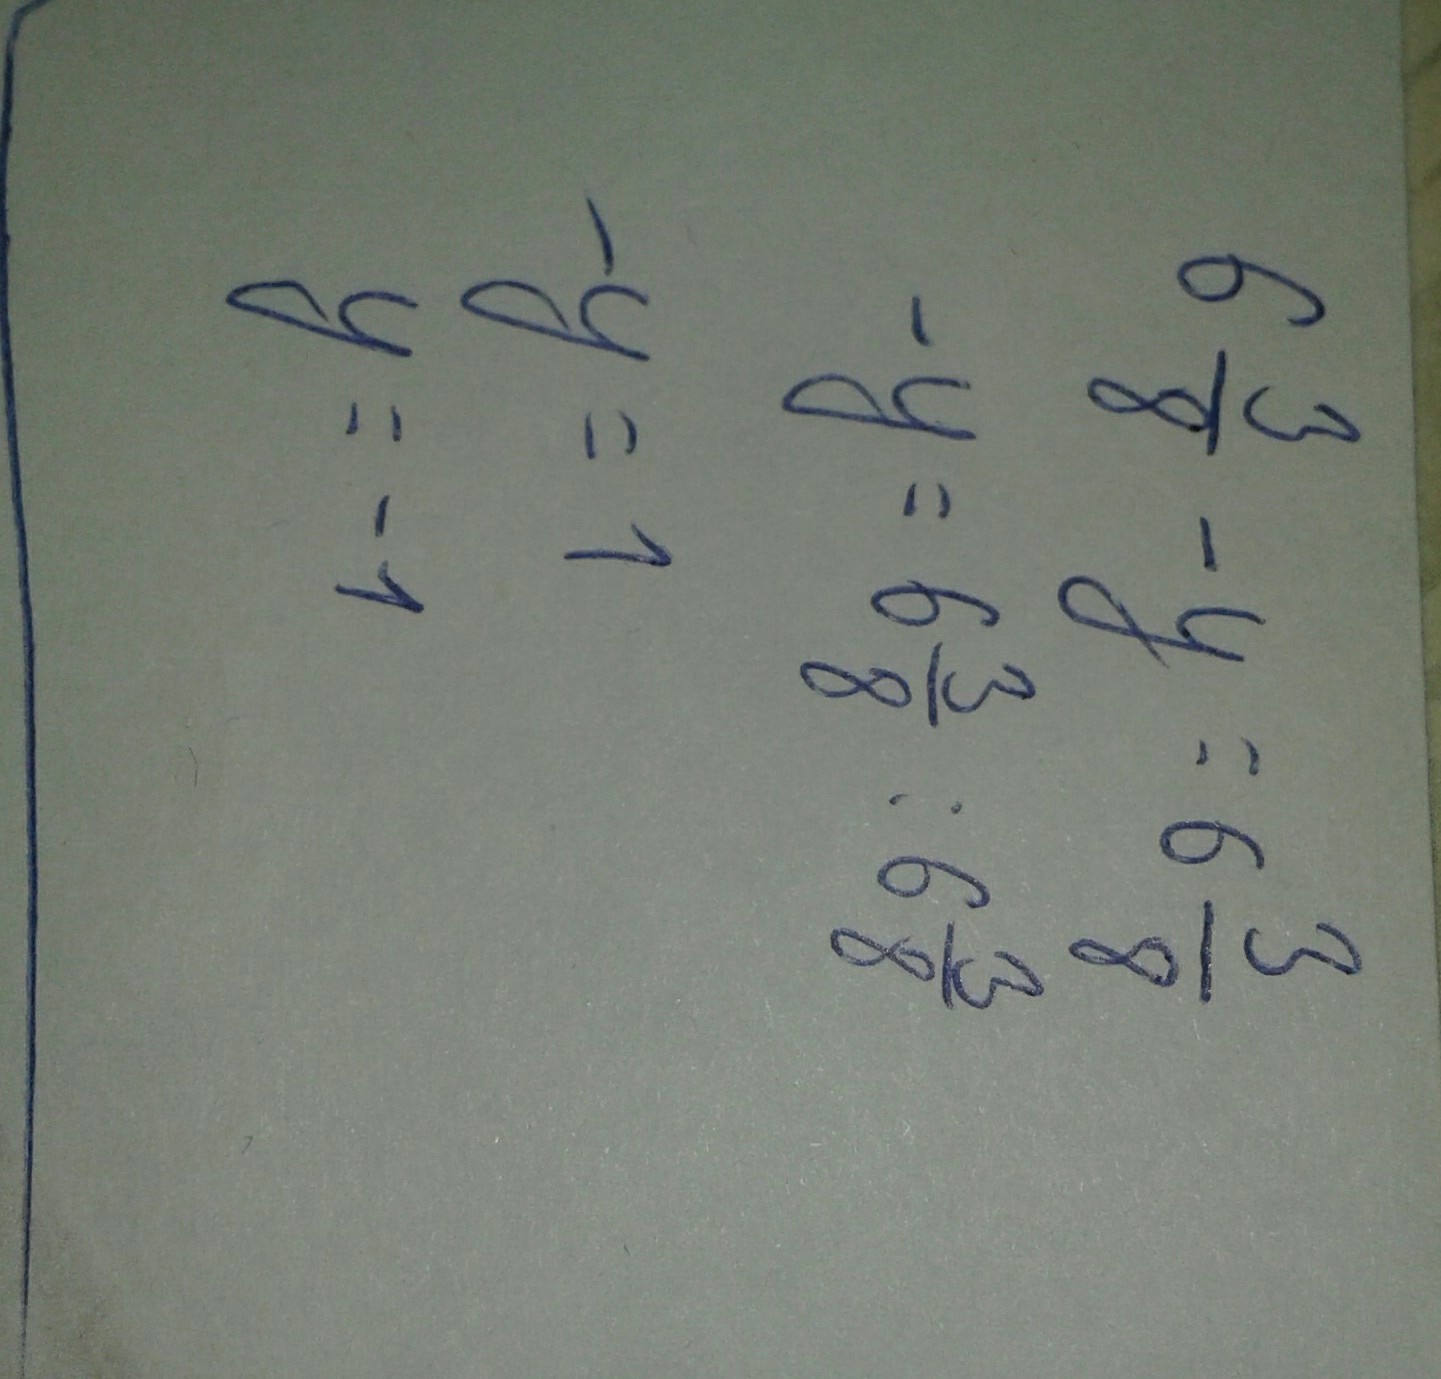 6 3/8 - y = 6 3/8
- y = 6 3/8 : 6 3/8
- y = 1
y = - 1